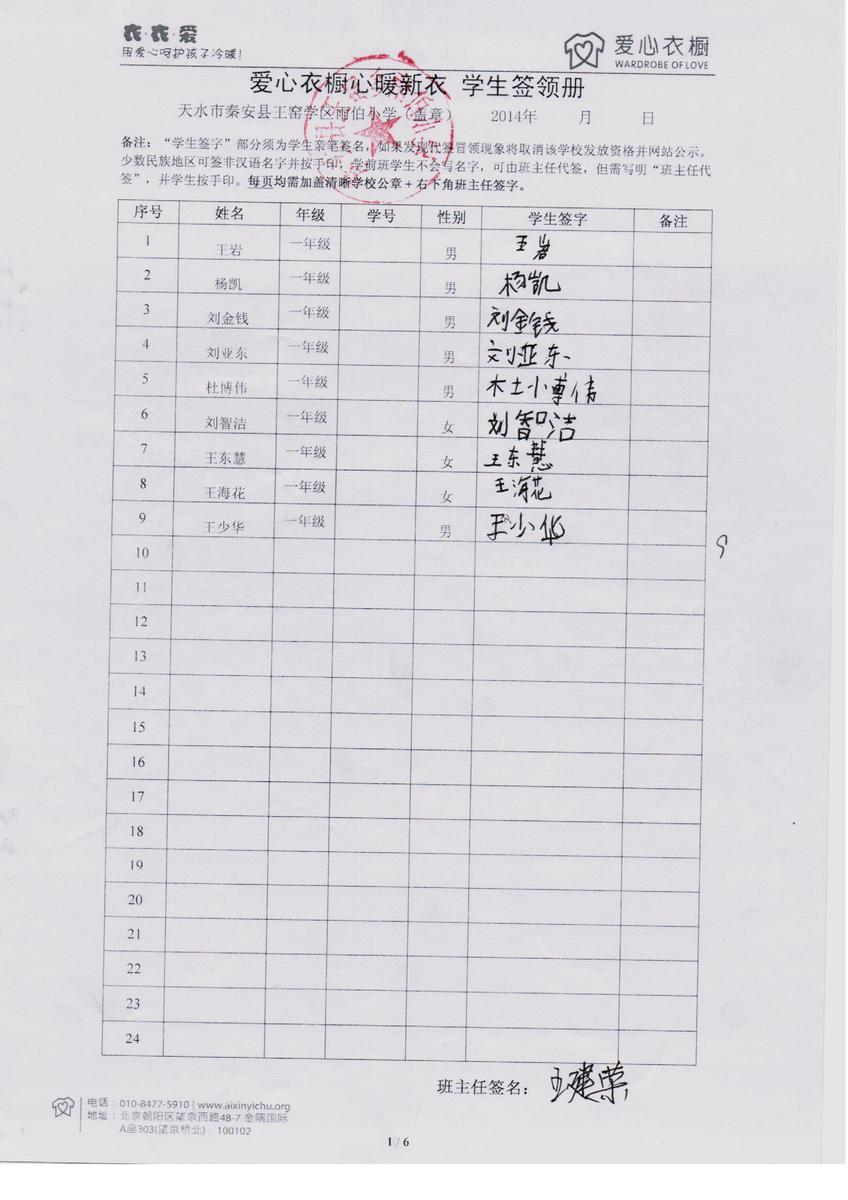 衣·衣·爱
用爱心呵护孩子冷暖!
爱心衣橱
WARDROBE OF LOVE
爱心衣橱心暖新衣 学生签领册
天水市秦安县王窑学区雨伯小学（盖章） 2014年 月 日
备注：“学生签字”部分须为学生亲笔签名，如果发现代签冒领现象将取消该学校发放资格并网站公示。
少数民族地区可签非汉语名字并按手印，学前班学生不会写名字，可由班主任代签，但需写明“班主任代
签”，并学生按手印。每页均需加盖清晰学校公章＋右下角班主任签字。
序号 姓名 年级 学号 性别 学生签字 备注
1 王岩 一年级 男 王岩
2 杨凯 一年级 男 杨凯
3 刘金钱 一年级 男 刘金钱
4 刘亚东 一年级 男 刘亚东
5 杜博伟 一年级 男 木土小尃伟
6 刘智洁 一年级 女 刘智洁
7 王东慧 一年级 女 王东慧
8 王海花 一年级 女 王海花
9 王少华 一年级 男 王少华
10
9
11
12
13
14
15
16
17
18
19
20
21
22
23
24
班主任签名： 王建荣
电话：010-8477-5910 | www.aixinyichu.org
地址：北京朝阳区望京西路48-7 金隅国际
A座303(望京桥北) · 100102
1 / 6